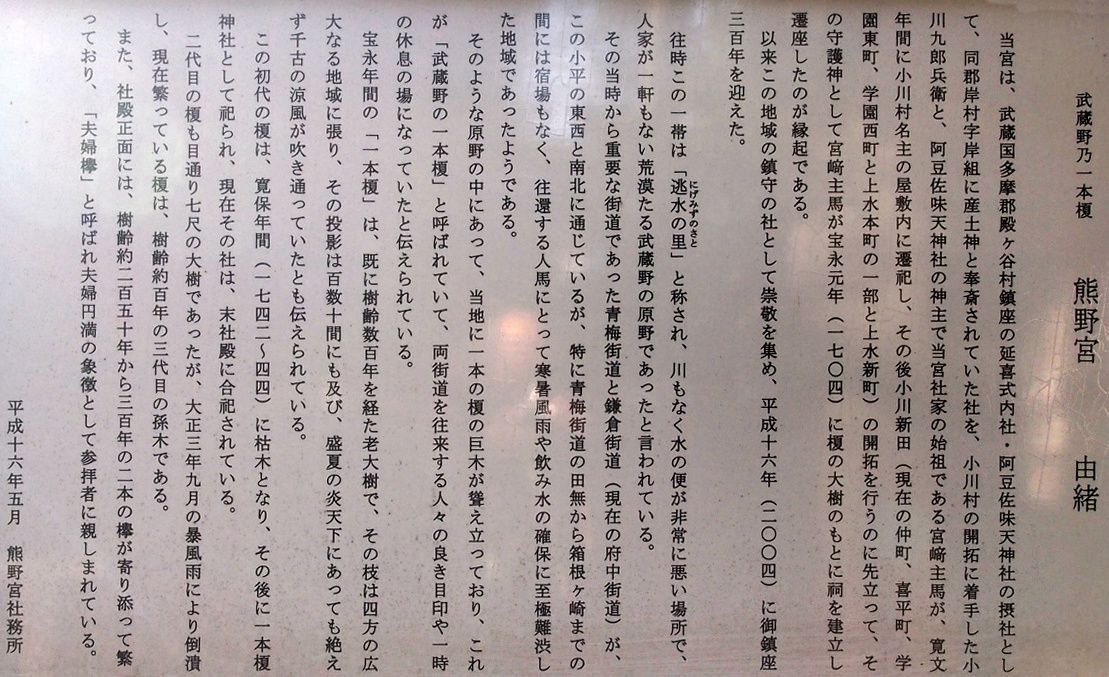 武蔵野乃一本榎
熊野宮 由緒
当宮は、武蔵国多摩郡殿ヶ谷村鎮座の延喜式内社・阿豆佐味天神社の摂社とし
て、同郡岸村字岸組に産土神と奉斎されていた社を、小川村の開拓に着手した小
川九郎兵衛と、阿豆佐味天神社の神主で当宮社家の始祖である宮﨑主馬が、寛文
年間に小川村名主の屋敷内に遷祀し、その後小川新田（現在の仲町、喜平町、学
園東町、学園西町と上水本町の一部と上水新町）の開拓を行うのに先立って、そ
の守護神として宮﨑主馬が宝永元年（一七〇四）に榎の大樹のもとに祠を建立し
遷座したのが縁起である。
以来この地域の鎮守の社として崇敬を集め、平成十六年（二〇〇四）に御鎮座
三百年を迎えた。
往時この一帯は「逃水の里」と称され、川もなく水の便が非常に悪い場所で、
にげみずのさと
人家が一軒もない荒漠たる武蔵野の原野であったと言われている。
その当時から重要な街道であった青梅街道と鎌倉街道（現在の府中街道）が、
この小平の東西と南北に通じているが、特に青梅街道の田無から箱根ヶ崎までの
間には宿場もなく、往還する人馬にとって寒暑風雨や飲み水の確保に至極難渋し
た地域であったようである。
そのような原野の中にあって、当地に一本の榎の巨木が聳え立っており、これ
が「武蔵野の一本榎」と呼ばれていて、両街道を往来する人々の良き目印や一時
の休息の場になっていたと伝えられている。
宝永年間の「一本榎」は、既に樹齢数百年を経た老大樹で、その枝は四方の広
大なる地域に張り、その投影は百数十間にも及び、盛夏の炎天下にあっても絶え
ず千古の涼風が吹き通っていたとも伝えられている。
この初代の榎は、寛保年間（一七四二～四四）に枯木となり、その後に一本榎
神社として祀られ、現在その社は、末社殿に合祀されている。
二代目の榎も目通り七尺の大樹であったが、大正三年九月の暴風雨により倒潰
し、現在繁っている榎は、樹齢約百年の三代目の孫木である。
また、社殿正面には、樹齢約二百五十年から三百年の二本の欅が寄り添って繁
っており、「夫婦欅」と呼ばれ夫婦円満の象徴として参拝者に親しまれている。
平成十六年五月 熊野宮社務所